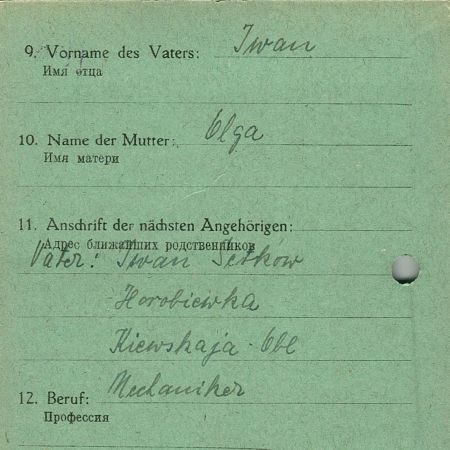 9. Vorname des Vaters: Iwan
Имя отца
10. Name der Mutter: Olga
Имя матери
11. Anschrift der nächsten Angehörigen:
Адрес ближайших родственников
Vater: Iwan
Horobiewka
Kiewskaja Obl
12. Beruf: Mechaniker
Профессия